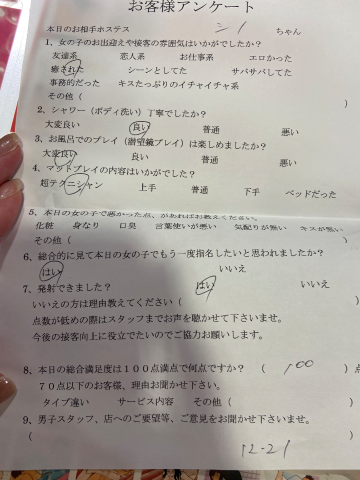 お客様アンケート
本日のお相手ホステス ちゃん
1、女の子のお出迎えや接客の雰囲気はいかがでしたか?
友達系 恋人系 お仕事系 エロかった
癒された シーンとしてた サバサバしてた
事務的だった キスたっぷりのイチャイチャ系
その他(
2、シャワー(ボディ洗い)丁寧でしたか?
大変良い 良い 普通 悪い
3、お風呂でのプレイ(潜望鏡プレイ)は楽しめましたか?
大変良い 良い 普通 悪い
4、マットプレイの内容はいかがでした?
超テクニシャン 上手 普通 下手 ベッドだった
5、本日の女の子で悪かった点、があればお教えください。
化粧 身なり 口臭 言葉使いが悪い 気配りが無い キスが無い
その他(
6、総合的に見て本日の女の子でもう一度指名したいと思われましたか?
はい いいえ
7、発射できました? はい いいえ
いいえの方は理由教えてください(
点数が低めの際はスタッフまでお声を聴かせて下さいませ。
今後の接客向上に役立でたいのでご協力お願いします。
8、本日の総合満足度は100点満点で何点ですか? ( 100 )点
70点以下のお客様、理由お聞かせ下さい。
タイプ違い サービス内容 その他(
9、男子スタッフ、店へのご要望等、ご意見をお聞かせ下さいませ。
(
12-21